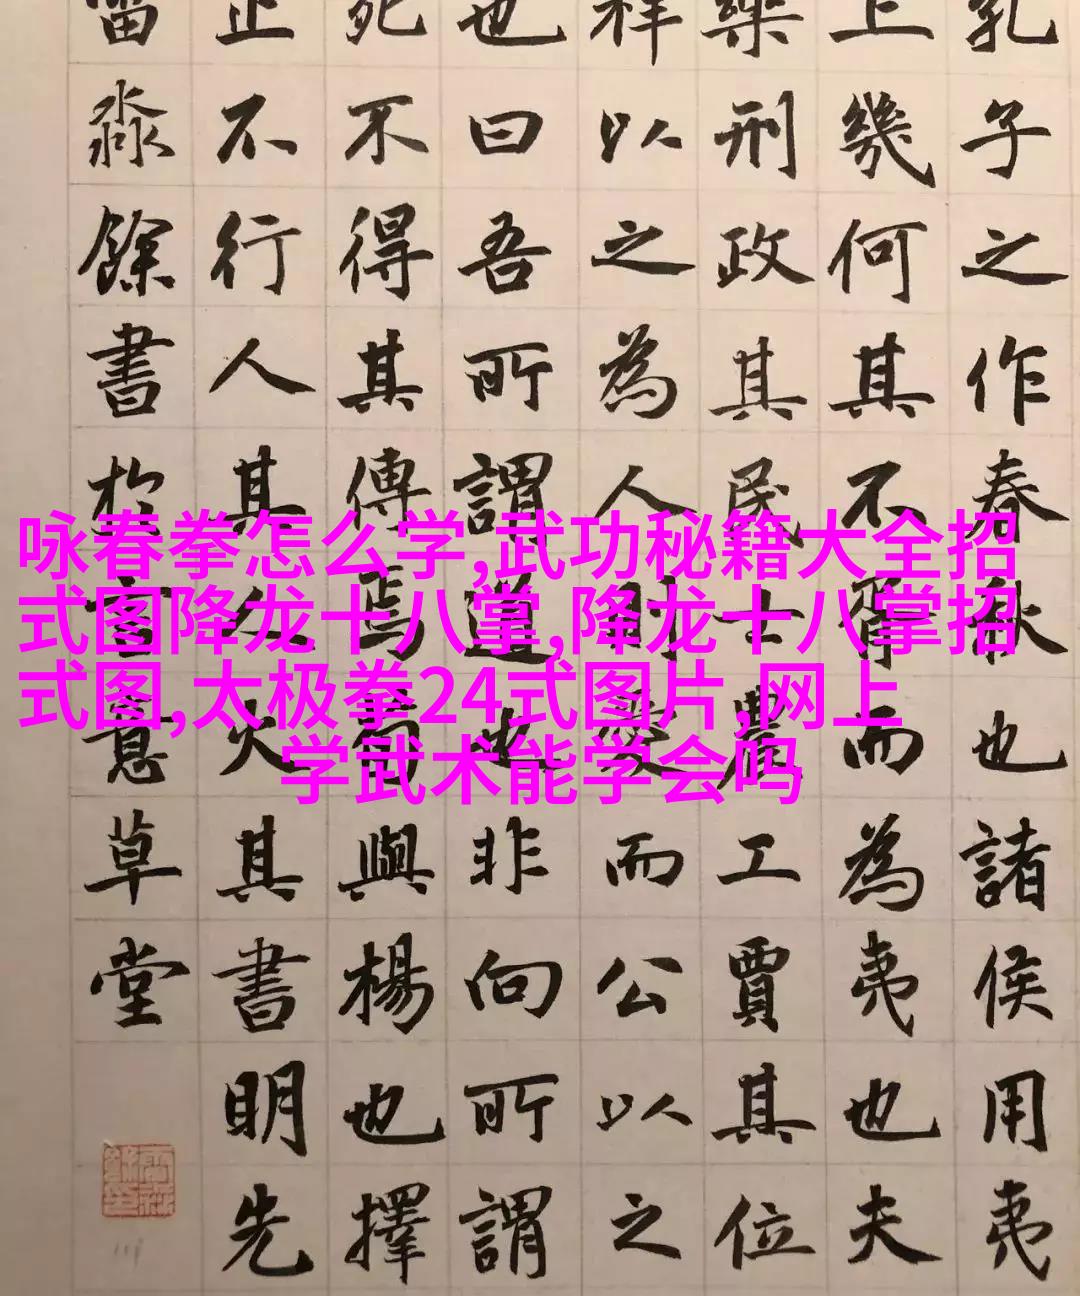 咏春拳怎么学,武功秘籍大全招
式图降龙十八掌,降龙十八掌招
式图,太极拳24式图片,网上
学武术能学会吗
孔子之作春秋也諸侯用夷
上幾何其不胥而為夷也夫
樂刑政其民士農工賈其位
祥以之為人則愛而公以之
也曰吾所謂道也非向所謂
死不得其傳焉荀與楊也擇
止不行人其人火其書明先
淼餘書於意草堂